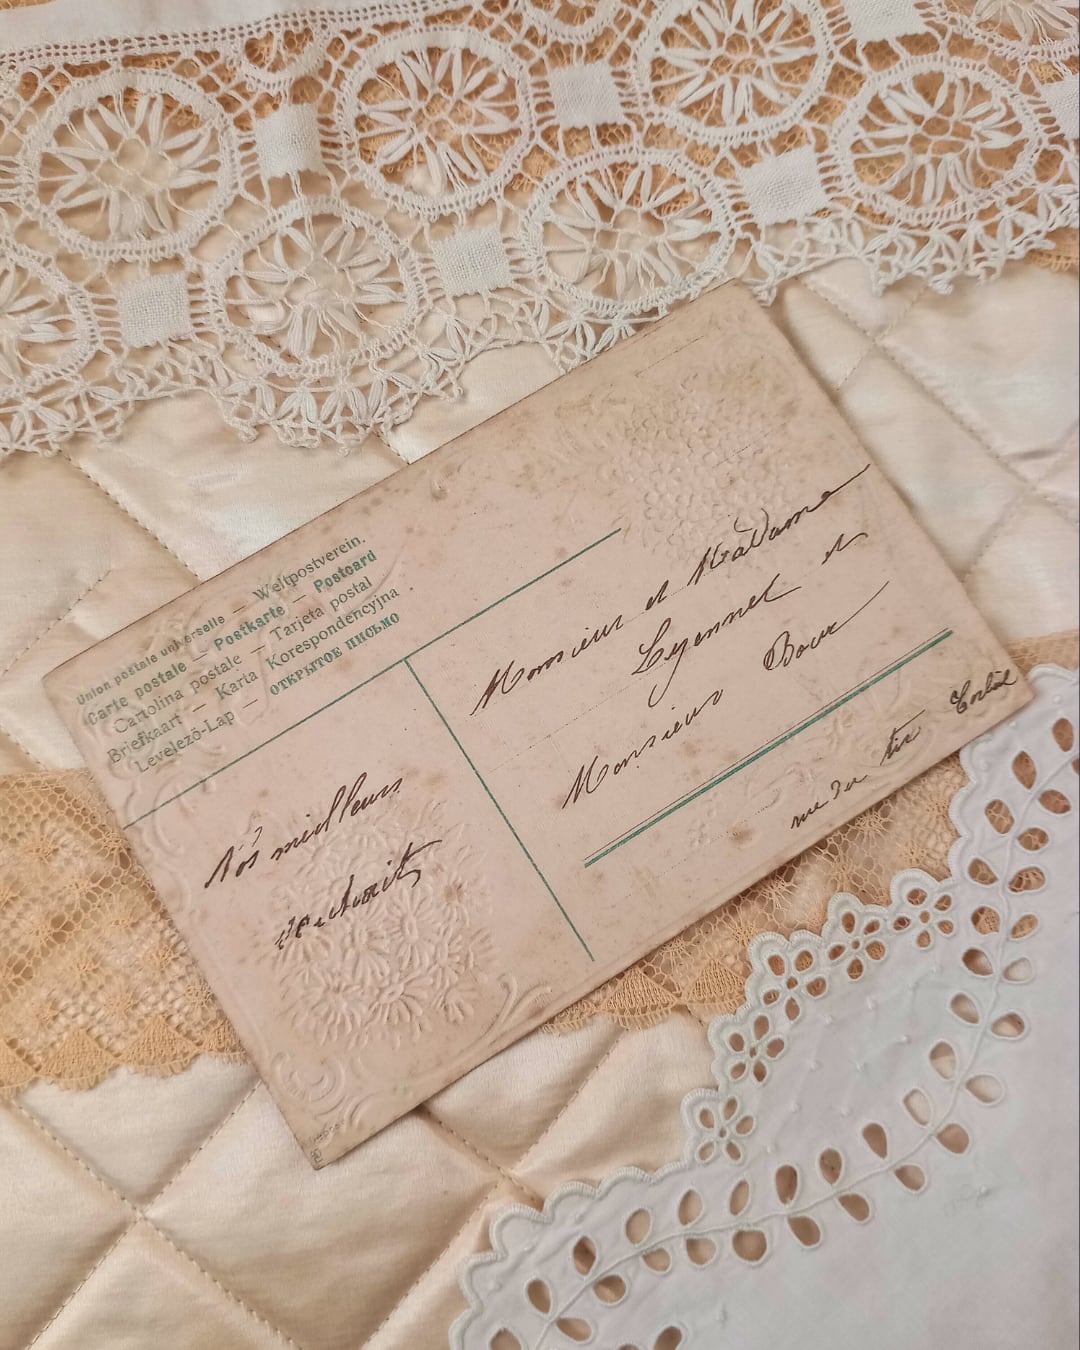 Union postale universelle — Weltpostverein.
Carte postale — Postkarte — Postcard
Cartolina postale — Tarjeta postal
Briefkaart — Karta Korespondencyjna
Levelező-Lap — ОТКРЫТОЕ ПИСЬМО
Monsieur et Madame
et
Monsieur Bour
rue du tir
Nos meilleurs
souhaits